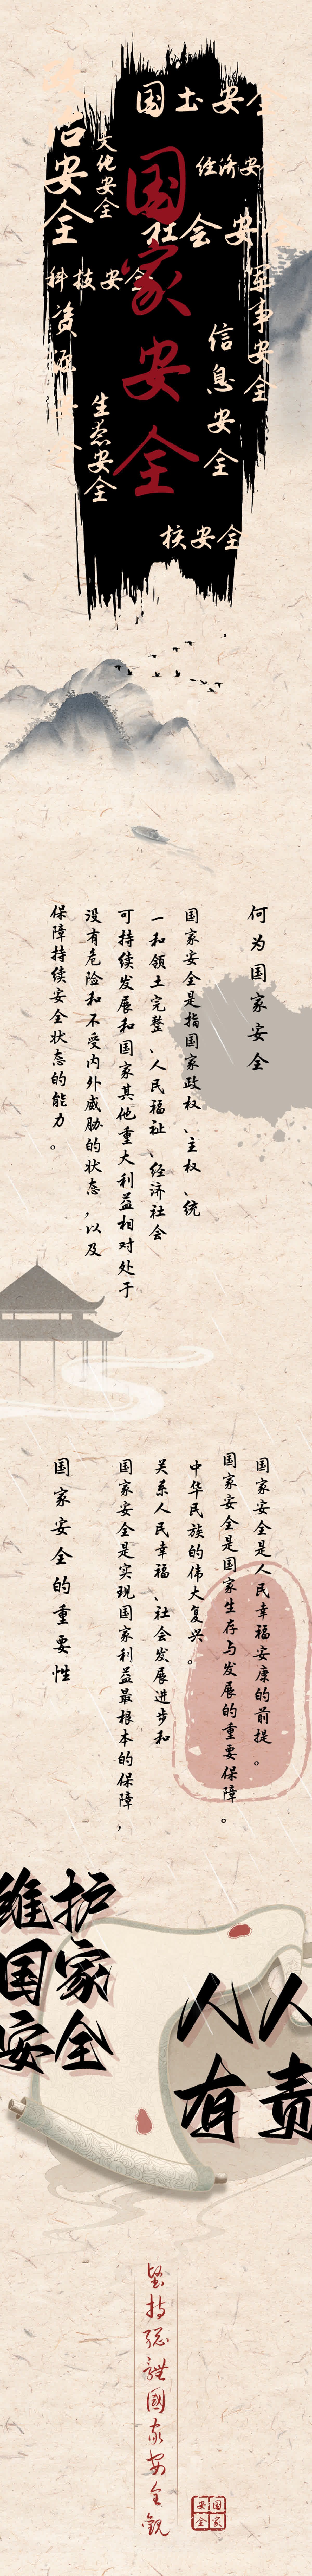 国家安全
国土安全
政治安全
文化安全
经济安全
社会安全
科技安全
军事安全
资源安全
信息安全
生态安全
核安全
何为国家安全
国家安全是指国家政权、主权、统
一和领土完整、人民福祉、经济社会
可持续发展和国家其他重大利益相对处于
没有危险和不受内外威胁的状态,以及
保障持续安全状态的能力。
国家安全的重要性
国家安全是人民幸福安康的前提。
国家安全是国家生存与发展的重要保障。
中华民族的伟大复兴。
关系人民幸福、社会发展进步和
国家安全是实现国家利益最根本的保障,
维护
国家
安全
人人
有责
坚持总體國家安全觀
国家
安全